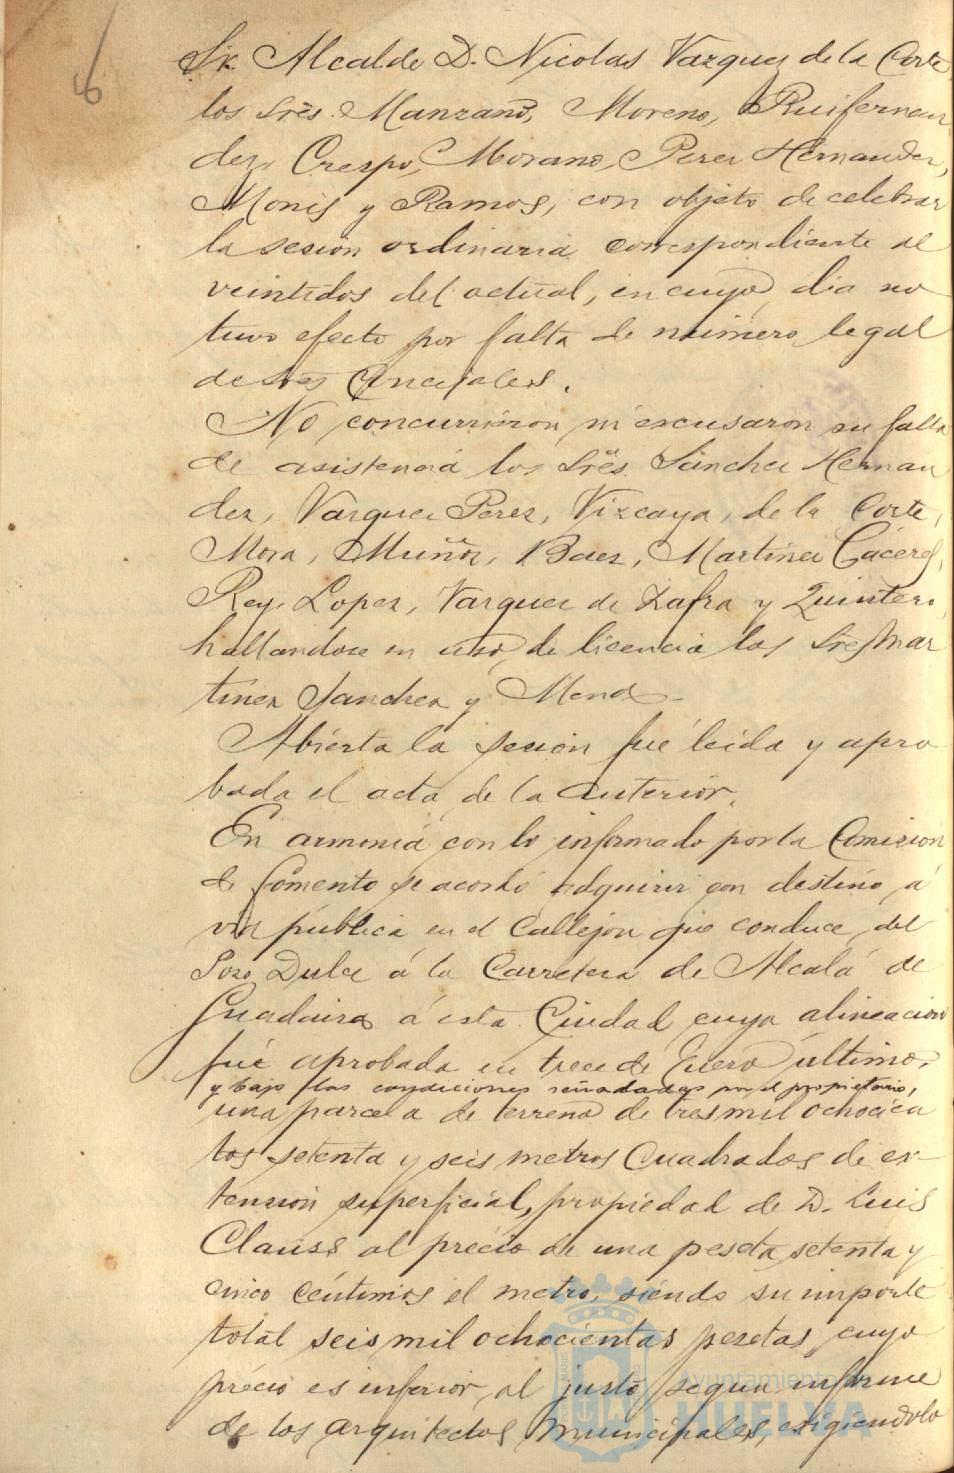 6
Sr. Alcalde D. Nicolas Vazquez de la Corte
los Sres. Manzano, Moreno, Ruifernan
dez, Crespo, Morano, Perez Hernandez,
Monis y Ramos, con objeto de celebrar
la sesion ordinaria correspondiente al
veintidos del actual, en cuyo dia no
tuvo efecto por falta de número legal
de Sres Concejales.
No concurrieron ni escusaron su falta
de asistencia los Sres. Sánchez Hernan
dez, Vazquez Perez, Vizcaya, de la Corte,
Mora, Muñoz, Baez, Martinez Cáceres,
Rey, Lopez, Vazquez de Zafra y Quintero,
hallandose en uso de licencia los Sres Mar
tinez Sanchez y
Abierta la sesion fué leida y apro
bada el acta de la anterior.
En armonia con lo informado por la Comision
de Fomento se acordó adquirir con destino á
via pública en el Callejon que conduce del
Pozo Dulce á la Carretera de Alcalá de
Guadaira á esta Ciudad cuya alineacion
fué aprobada en trece de Enero último,
y bajo las condiciones señaladas por el propietario,
una parcela de terreno de tres mil ochocien
tos setenta y seis metros cuadrados de ex
tension superficial, propiedad de D. Luis
Clauss al precio de una peseta setenta y
cinco céntimos el metro, siendo su importe
total seis mil ochocientas pesetas cuyo
précio es inferior al justo segun informe
de los arquitectos Municipales, exigiendolo
Ayuntamiento de
HUELVA